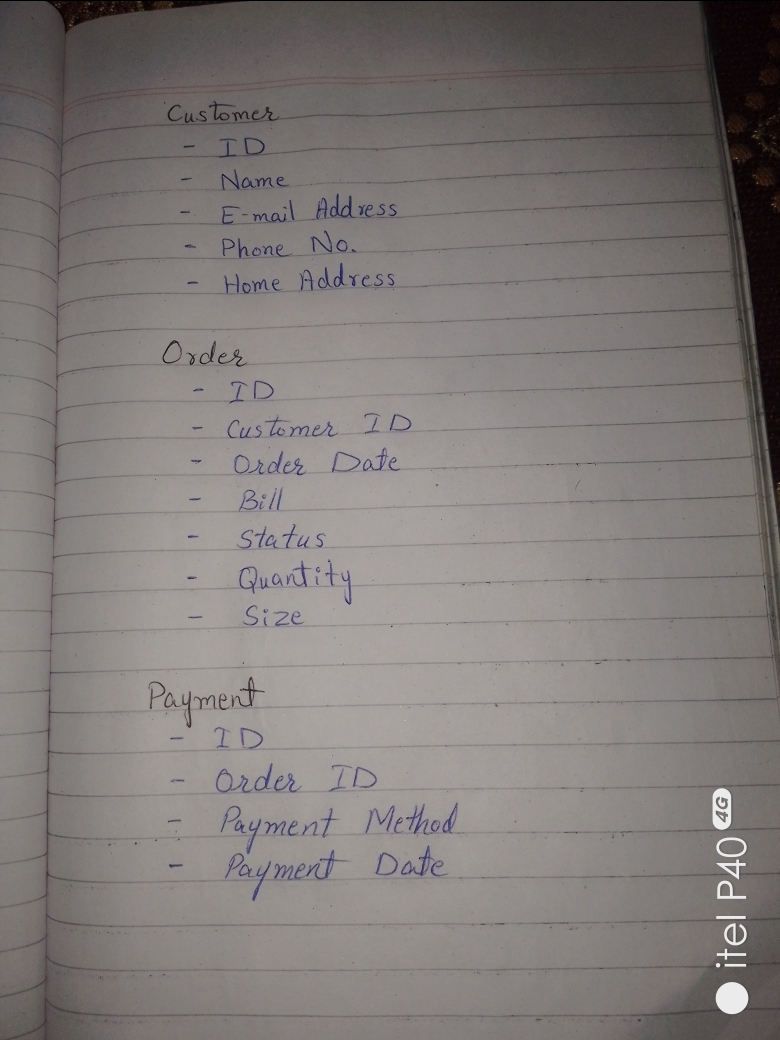 Customer
- ID
- Name
- E-mail Address
- Phone No.
- Home Address
Order
- ID
- Customer ID
- Order Date
- Bill
- Status
- Quantity
- Size
Payment
- ID
- Order ID
- Payment Method
- Payment Date
itel P40 4G